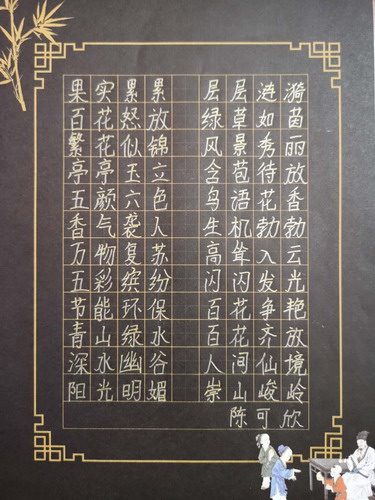 果实累累 层层涟漪
百花怒放 绿草如茵
繁花似锦 风景秀丽
亭亭玉立 含苞待放
五颜六色 鸟语花香
香气袭人 生机勃勃
万物复苏 高耸入云
五彩缤纷 闪闪发光
节能环保 百花争艳
青山绿水 百花齐放
深水幽谷 人间仙境
阳光明媚 崇山峻岭
陈可欣